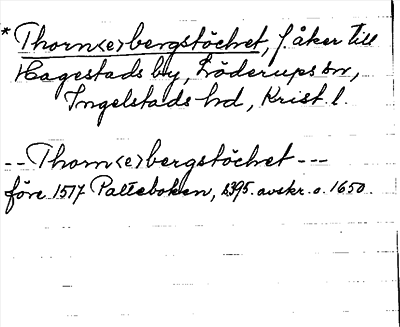 * Thorn<e>bergstöchet, f. åker till
Hagestads by, Löderups sn,
Ingelstads hd, Krist. l.
-- Thorn<e>bergstöchet ---
före 1517 Palteboken, s395. avskr. o. 1650.